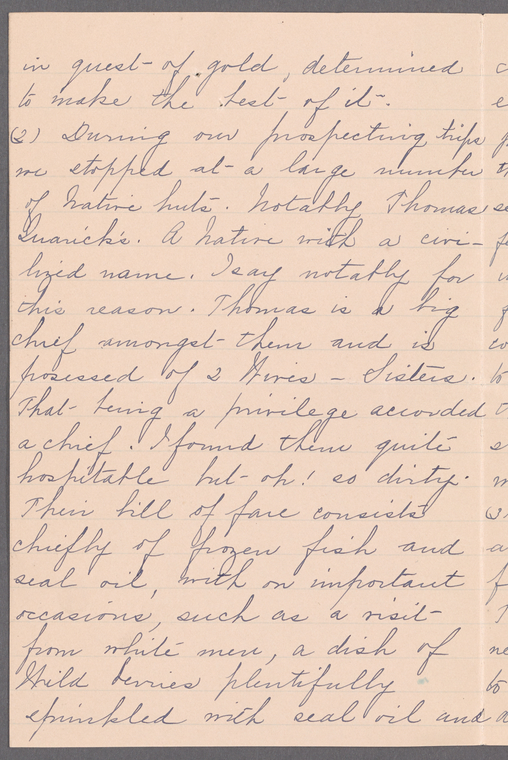 in quest of gold, determined
to make the best of it.
(2) During our prospecting trips
we stopped at a large number
of Native huts. Notably Thomas
Quarick's. A Native with a civi-
lized name. I say notably for
this reason. Thomas is a big
chief amongst them and is
posessed of 2 Wives – Sisters.
That being a privilege accorded
a chief. I found them quite
hospitable but oh! so dirty.
Their bill of fare consists
chiefly of frozen fish and
seal oil, with on important
occasions, such as a visit
from white men, a dish of
Wild berries plentifully
sprinkled with seal oil and